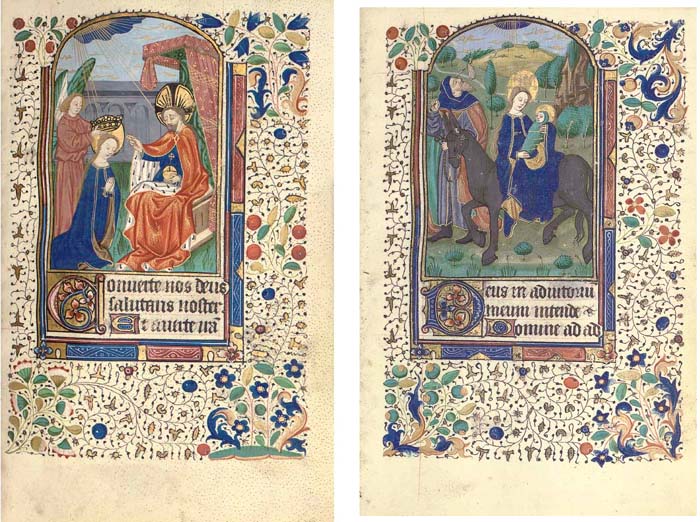 Converte nos deus
salutaris noster
Et averte ira
Deus in adiutoriu
meum intende &
Domine ad ad